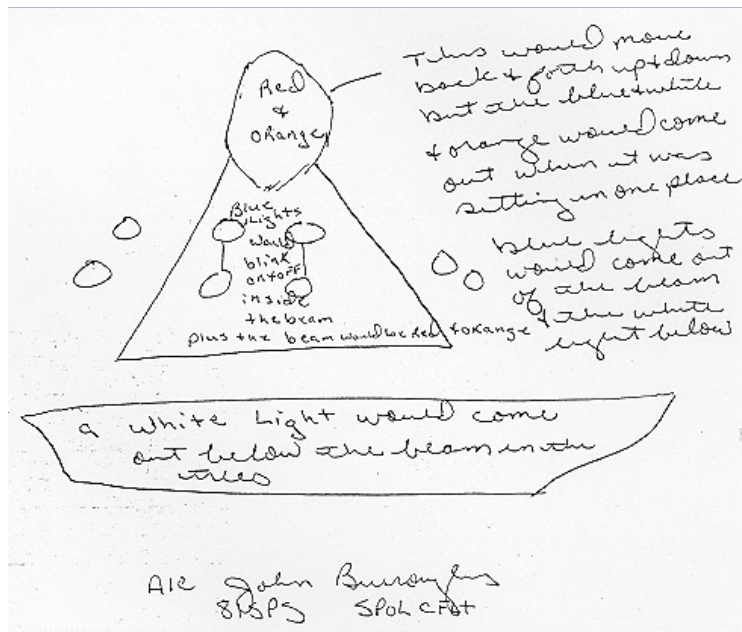 Red
&
ORange
This would move
back & forth up & down
but the blue & white
& orange would come
out when it was
setting in one place
Blue
Lights
would
blink
on & off
inside
the beam
Plus the beam would be Red & ORange
blue lights
would come out
of the beam
& the white
light below
a white Light would come
out below the beam in the
trees
A1C John Burroughs
81SPS